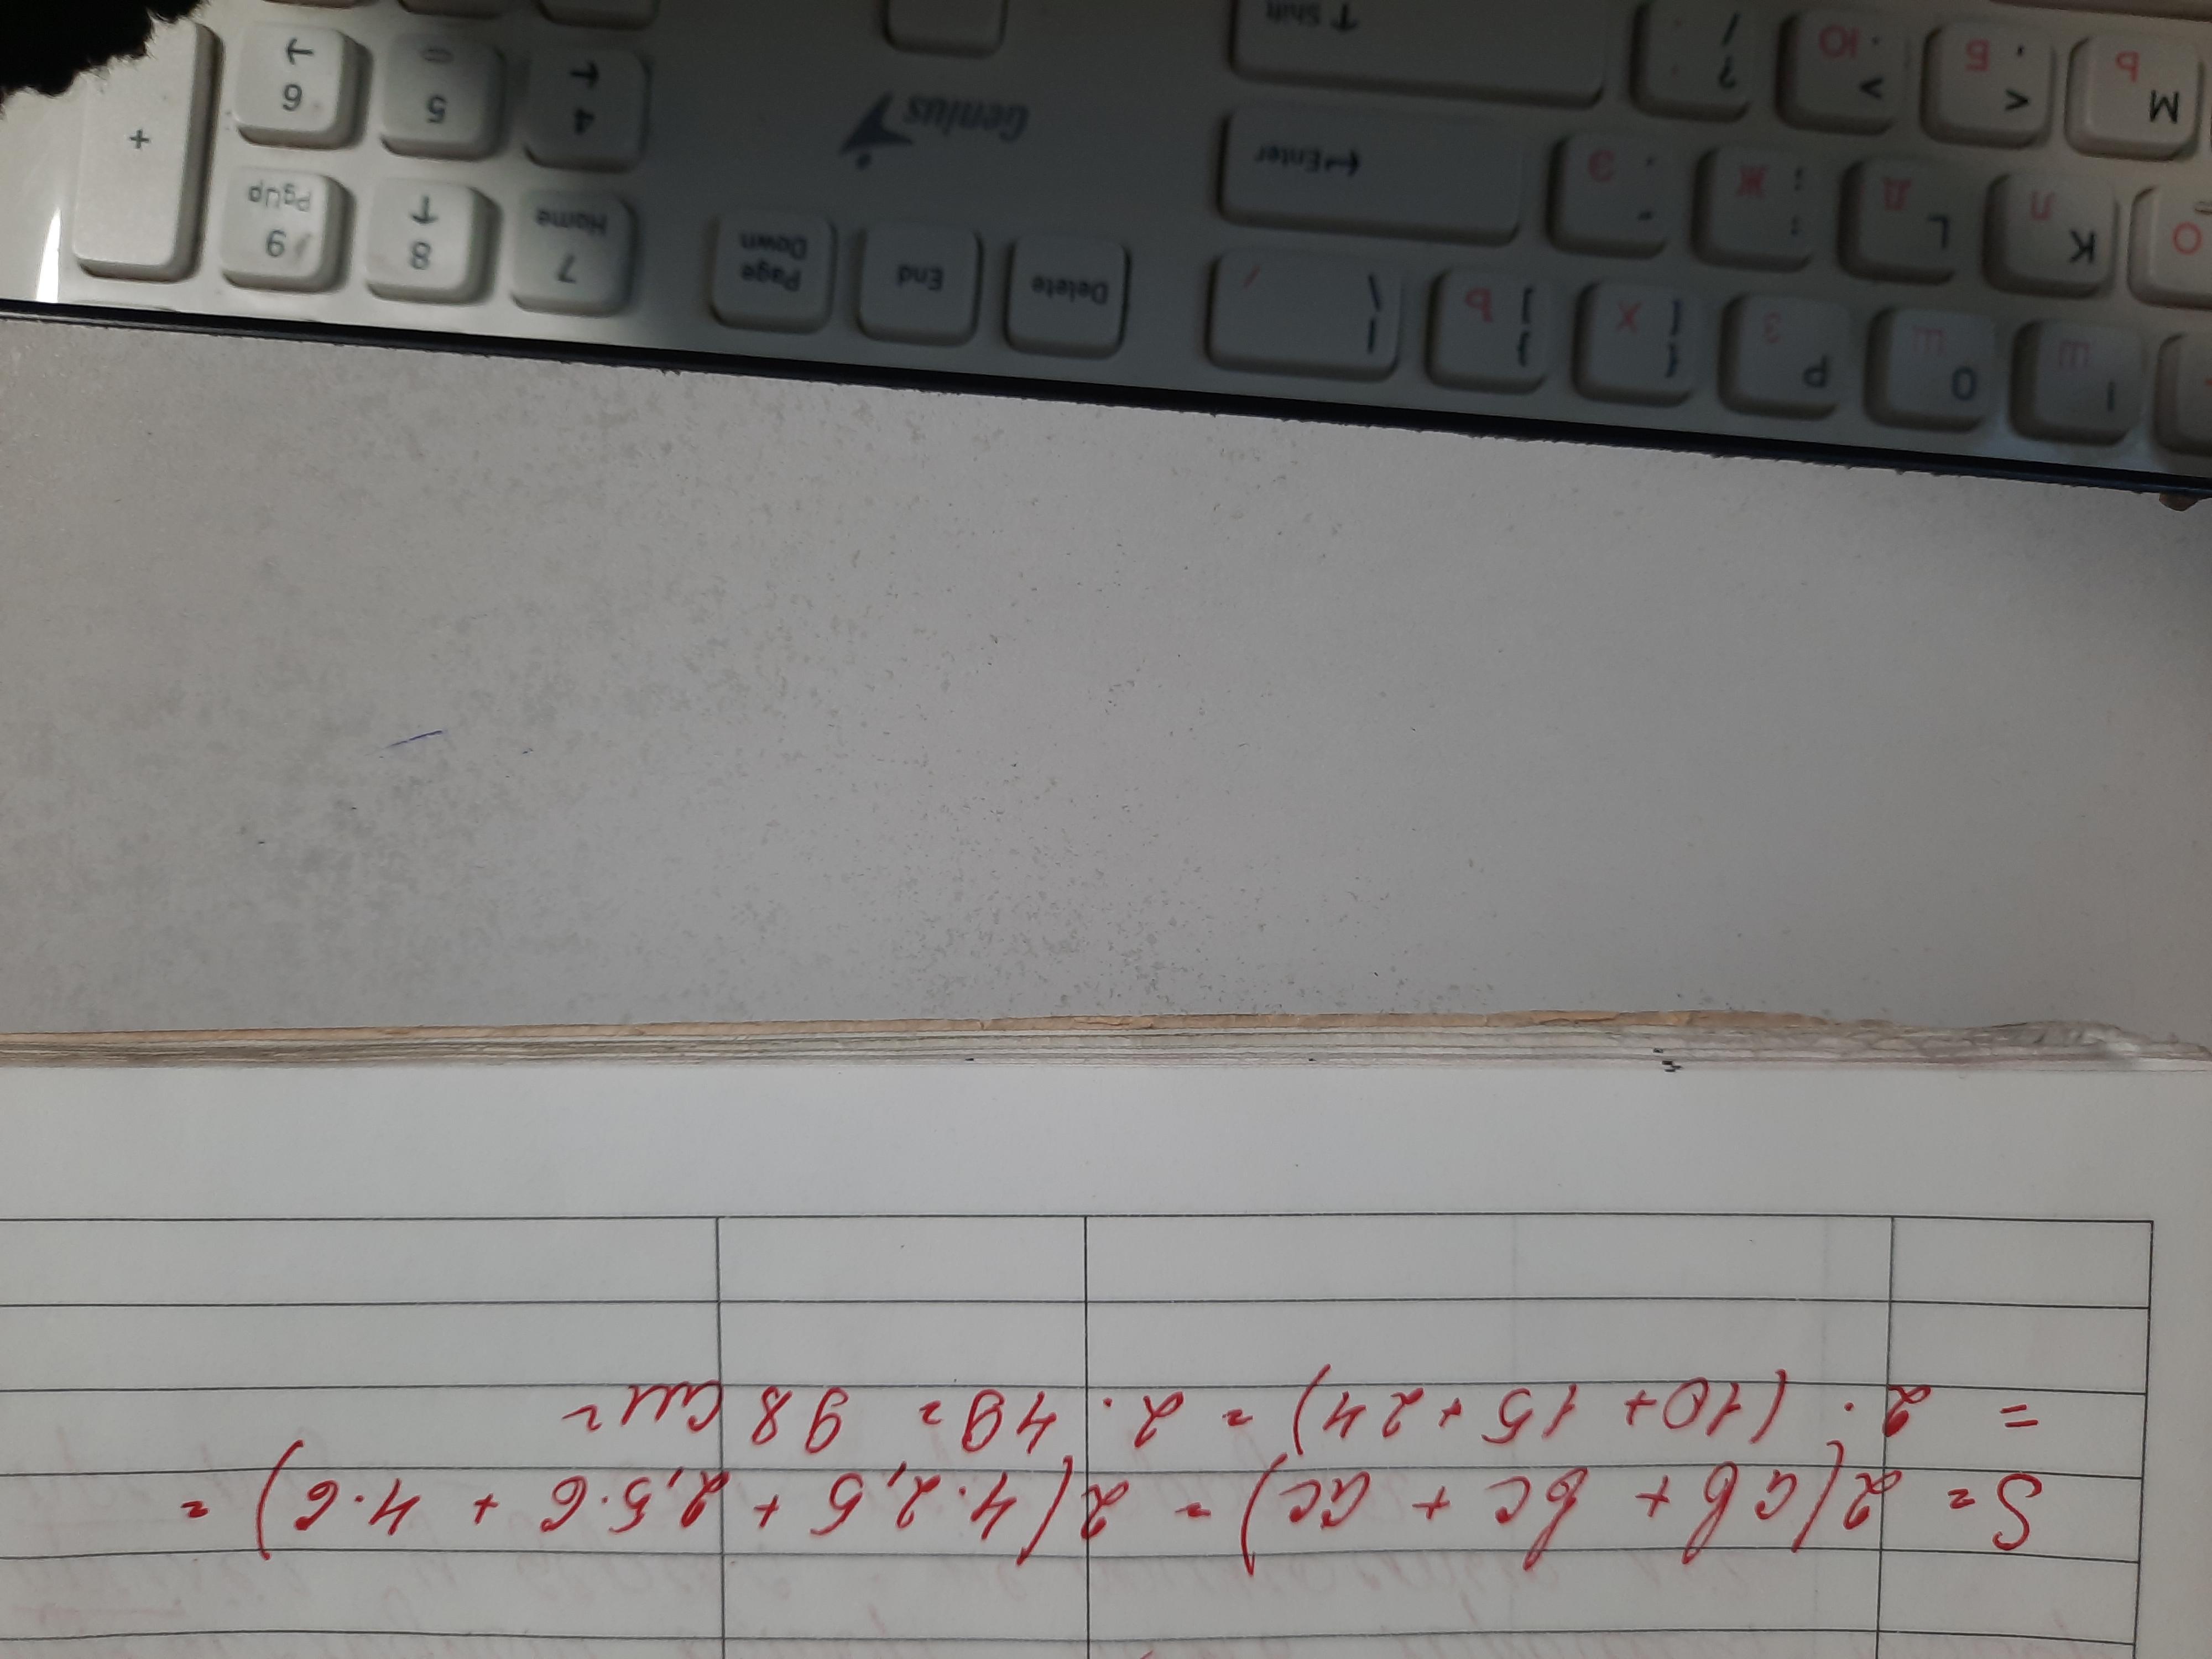 S = 2(ab + bc + ac) = 2(4·2,5 + 2,5·6 + 4·6) =
= 2·(10+15+24) = 2·49 = 98 см²
I Ш
O Щ
P З
{ [ Х
} ] Ъ
| \ /
Delete
End
Page Down
7 Home
8 ↑
9 PgUp
+
K Л
L Д
: ; Ж
" ' Э
←Enter
Genius
4 ←
5
6 →
M Ь
< , Б
> . Ю
? /
↑ Shift